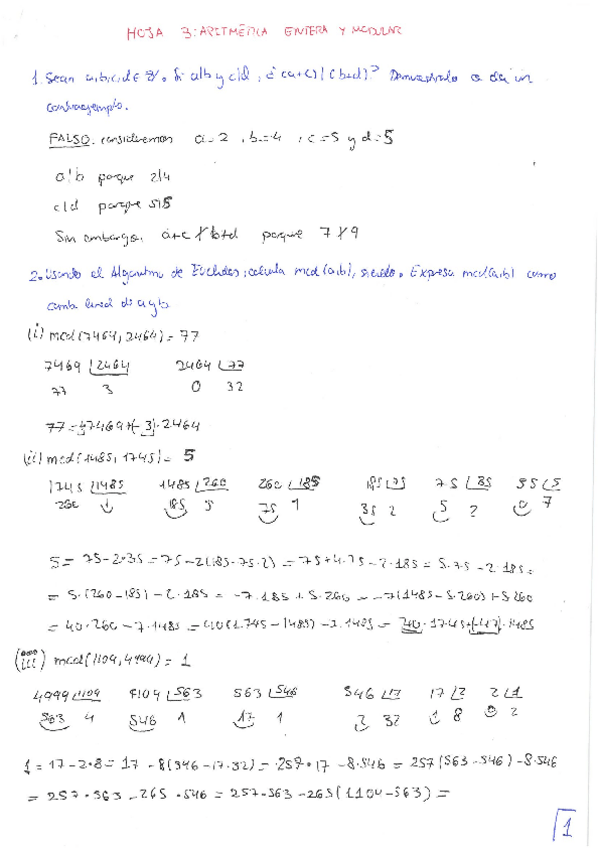 HOJA 3: ARITMÉTICA ENTERA Y MODULAR
1. Sean a,b,c,d ∈ Z. Si a|b y c|d, ¿(a+c)|(b+d)? Demuestralo o da un
contraejemplo.
FALSO. consideremos a=2, b=4, c=5 y d=5
a|b porque 2|4
c|d porque 5|5
Sin embargo, a+c ∤ b+d porque 7 ∤ 9
2. Usando el Algoritmo de Euclides, calcula mcd(a,b), siendo. Expresa mcd(a,b) como
comb lineal de a y b
(i) mcd(7469, 2464) = 77
7469 | 2464 2464 | 77
77 3 0 32
77 = 1·7469 + (-3)·2464
(ii) mcd(1485, 1745) = 5
1745 | 1485 1485 | 260 260 | 185 185 | 75 75 | 35 35 | 5
260 1 185 5 75 1 35 2 5 2 0 7
5 = 75-2·35 = 75-2(185-75·2) = 75+4·75-2·185 = 5·75-2·185 =
= 5·(260-185) - 2·185 = -7·185 + 5·260 = -7(1485-5·260) + 5·260
= 40·260 - 7·1485 = 40(1745-1485) - 7·1485 = 40·1745 + (-47)·1485
(iii) mcd(1109, 4999) = 1
4999 | 1109 1109 | 563 563 | 546 546 | 17 17 | 2 2 | 1
563 4 546 1 17 1 2 32 1 8 0 2
1 = 17-2·8 = 17 - 8(546-17·32) = 257·17 - 8·546 = 257(563-546) - 8·546
= 257·563 - 265·546 = 257·563 - 265(1109-563) =
1